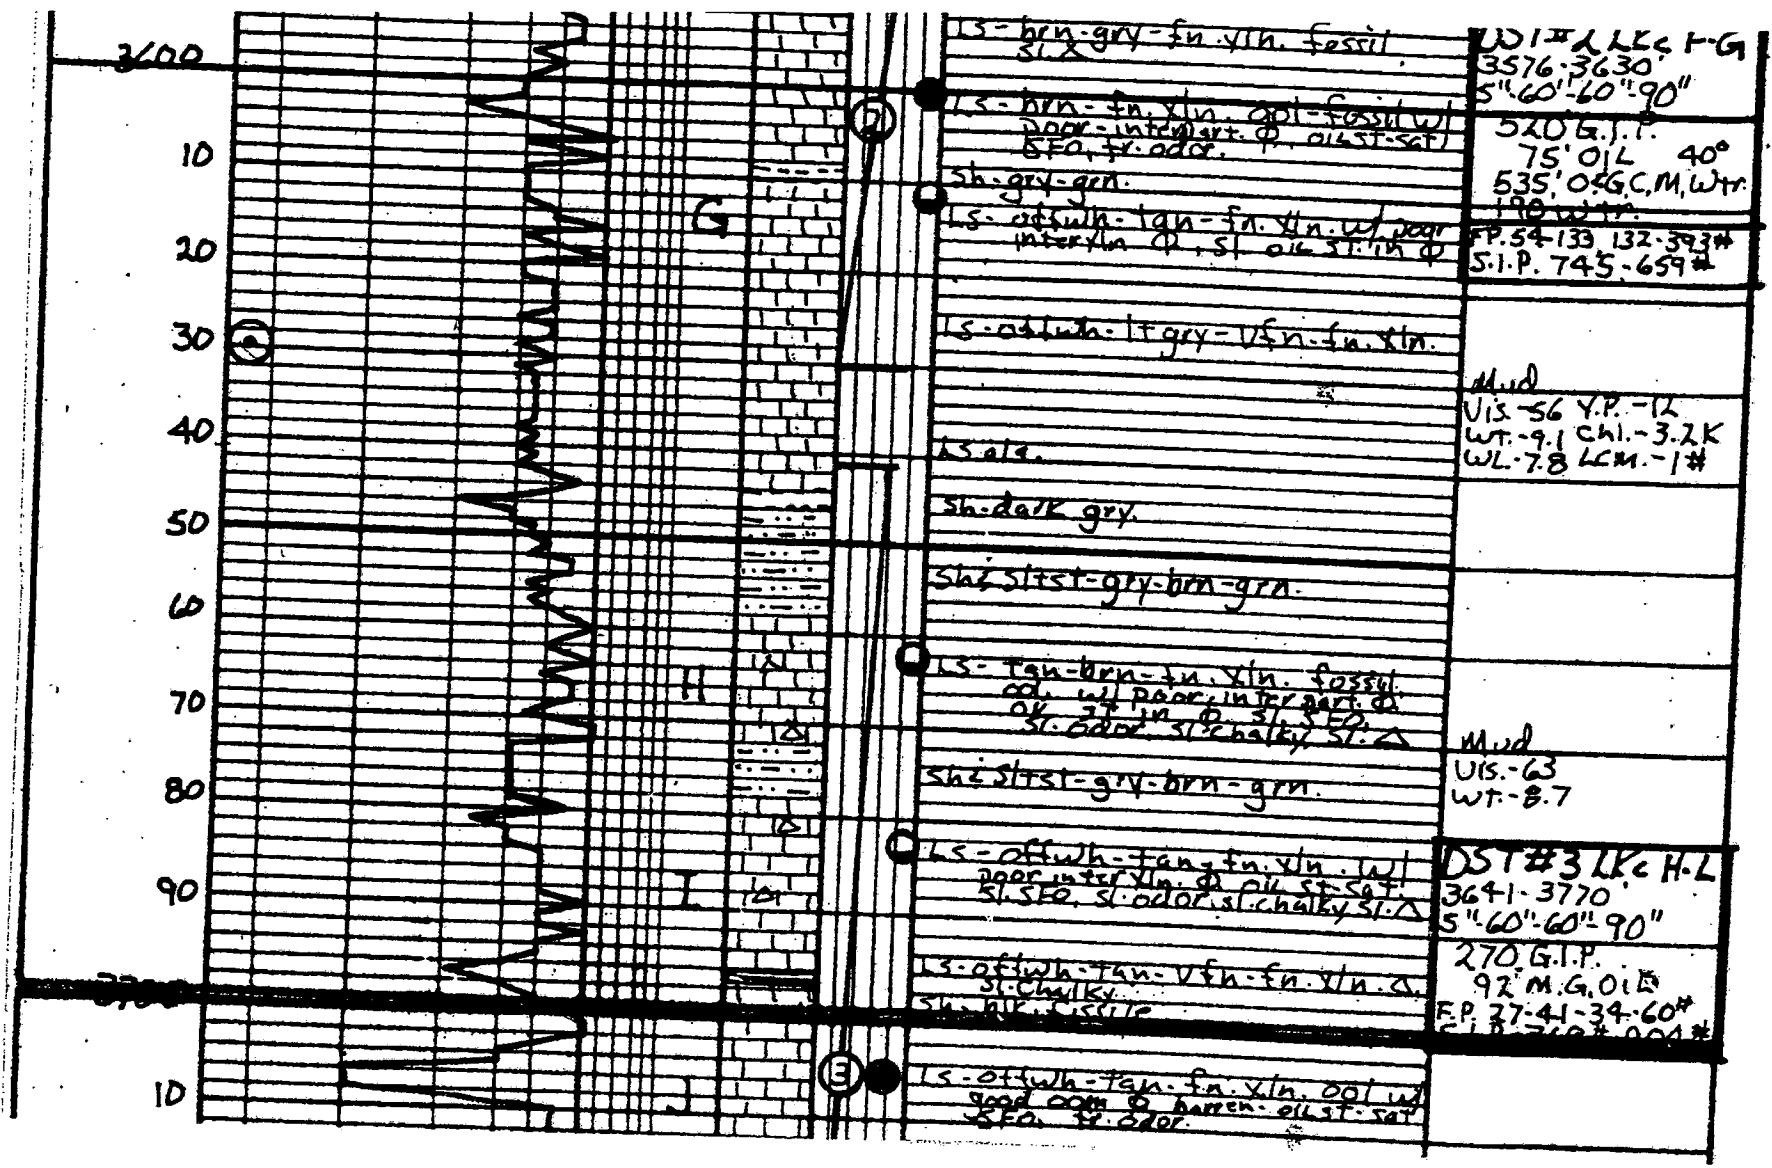 3600
10
20
30
40
50
60
70
80
90
3700
10
G
H
I
J
2
3
Ls - brn-gry-fn. xln. fossil
sl. Δ
Ls - brn - fn. xln. ool-fossil w/
poor-interpart. Φ, oil st-sat
SFO, fr. odor.
Sh-gry-grn.
Ls - offwh-tan-fn. xln. w/ poor
interxln Φ, sl. oil st. in Φ
Ls-offwh-lt gry-vfn-fn. xln.
Ls a/a.
Sh-dark gry.
Sh & sltst-gry-brn-grn.
Ls - tan-brn-fn. xln. fossil.
ool. w/ poor-interpart. Φ.
st in Φ, sl. SFO.
sl. odor, sl chalky, sl. Δ
Sh & sltst-gry-brn-grn.
Ls - offwh-tan-fn. xln. w/
poor interxln. Φ oil st-sat
sl. SFO, sl. odor, sl. chalky sl. Δ
Ls-offwh-tan-vfn-fn. xln. Δ
sl. chalky
Sh-blk. fissile
Ls-offwh-tan-fn. xln. ool w/
good oom Φ barren-oil st-sat
SFO, fr. odor.
DST#2 LKc F-G
3576-3630'
5"-60"-60"-90"
520' G.I.P.
75' OIL 40°
535' O.&G.C.M.Wtr.
190' wtr.
F.P. 54-133, 132-393#
S.I.P. 745-659#
Mud
Vis.-56 Y.P.-12
Wt.-9.1 Chl.-3.2K
WL.-7.8 LCM.-1#
Mud
Vis.-63
Wt.-8.7
DST#3 LKc H-L
3641-3770'
5"-60"-60"-90"
270' G.I.P.
92' M.G.OIL
F.P. 27-41-34-60#